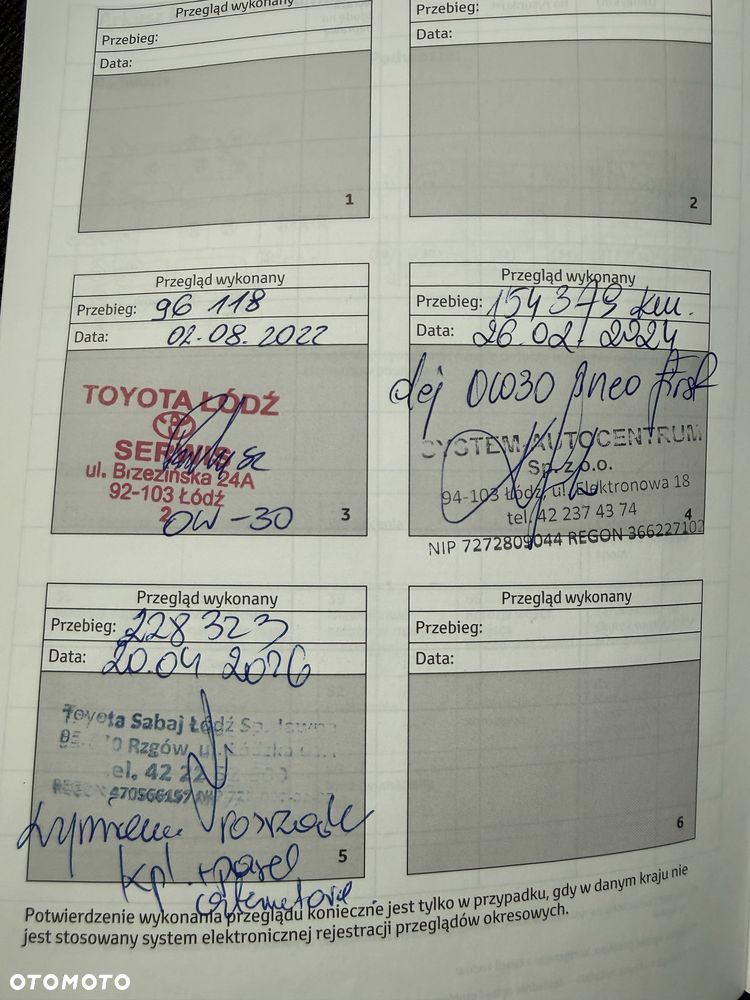 Przegląd wykonany
Przebieg:
Data:
1
Przebieg:
Data:
2
Przegląd wykonany
Przebieg: 96 118
Data: 02.08.2022
TOYOTA ŁÓDŹ
SERWIS
ul. Brzezińska 24A
92-103 Łódź
2
OW-30
3
Przegląd wykonany
Przebieg: 154 379 km.
Data: 26.02.2024
olej 0W30
SYSTEM-AUTOCENTRUM
Sp. z o.o.
94-103 Łódź, ul. Elektronowa 18
tel. 42 237 43 74
NIP 7272809044 REGON 366227102
4
Przegląd wykonany
Przebieg: 228 323
Data: 20.04 2026
Toyota Sabaj Łódź Sp.
Rzgów, ul.
tel. 42 22
REGON 470566157
rozrządu
kpl. + pasek
5
Przegląd wykonany
Przebieg:
Data:
6
Potwierdzenie wykonania przeglądu konieczne jest tylko w przypadku, gdy w danym kraju nie
jest stosowany system elektronicznej rejestracji przeglądów okresowych.
OTOMOTO